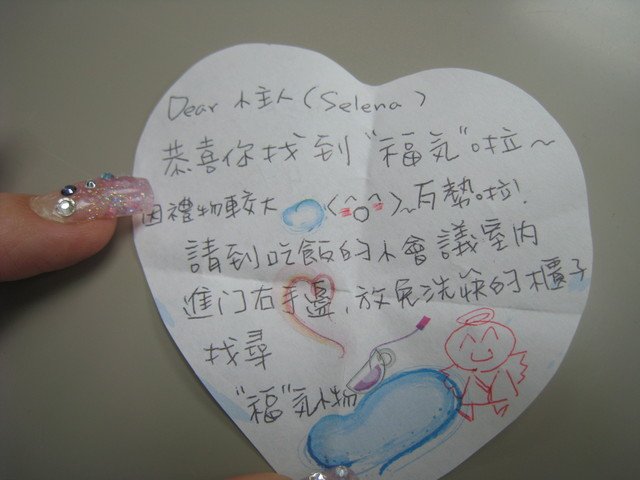 Dear 小主人(Selena)
恭喜你找到"福気"啦~
因禮物較大 ~歹勢啦!
請到吃飯的小會議室內
進门右手邊,放免洗筷的櫃子
找尋
"福"気小物